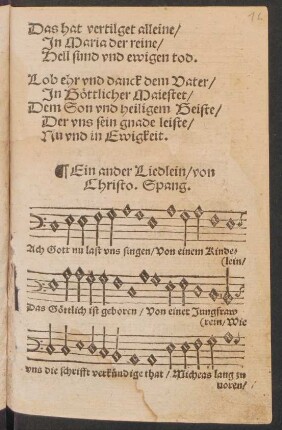 12
Das hat vertilget alleine/
In Maria der reine/
Hell sünd vnd ewigen tod.
Lob ehr vnd danck dem Vater/
In Göttlicher Maiestet/
Dem Son vnd heiligem Geiste/
Der vns sein gnade leiste/
Nu vnd in Ewigkeit.
¶ Ein ander Liedlein/von
Christo. Spang.
Ach Gott nu last vns singen/Von einem Kinde-
(lein/
Das Göttlich ist geboren/Von einer Jungfraw
(rein/Wie
vns die schrifft verkündige that/Micheas lang zu
uoren/